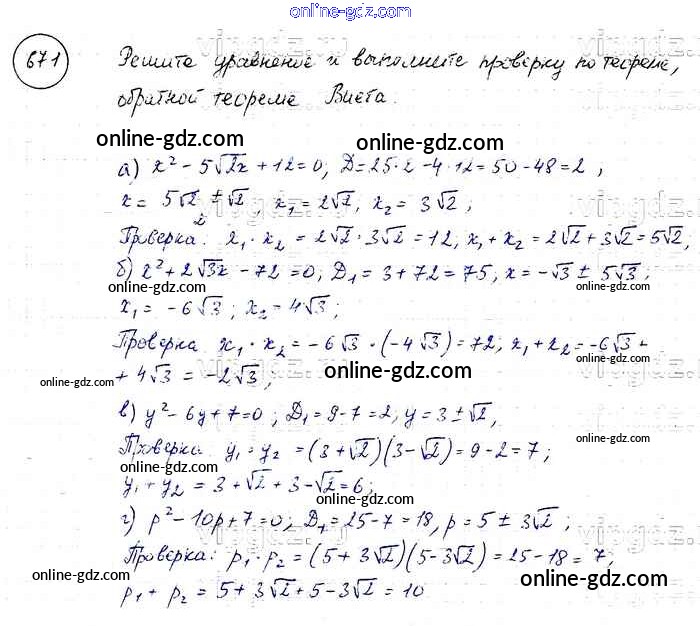 online-gdz.com
671 Решите уравнение и выполните проверку по теореме,
обратной теореме Виета.
online-gdz.com online-gdz.com
а) x² - 5√2x + 12 = 0, D = 25·2 - 4·12 = 50 - 48 = 2,
x = (5√2 ± √2)/2, x₁ = 2√2, x₂ = 3√2,
Проверка: x₁ · x₂ = 2√2 · 3√2 = 12, x₁ + x₂ = 2√2 + 3√2 = 5√2,
б) x² + 2√3x - 72 = 0; D₁ = 3 + 72 = 75, x = -√3 ± 5√3;
online-gdz.com online-gdz.com
x₁ = -6√3; x₂ = 4√3;
Проверка x₁ · x₂ = -6√3 · (-4√3) = 72; x₁ + x₂ = -6√3 +
online-gdz.com online-gdz.com online-gdz.com
+ 4√3 = -2√3;
в) y² - 6y + 7 = 0; D₁ = 9 - 7 = 2, y = 3 ± √2,
online-gdz.com
Проверка: y₁ · y₂ = (3 + √2)(3 - √2) = 9 - 2 = 7;
online-gdz.com
y₁ + y₂ = 3 + √2 + 3 - √2 = 6;
online-gdz.com
г) p² - 10p + 7 = 0; D₁ = 25 - 7 = 18, p = 5 ± 3√2;
online-gdz.com
Проверка: p₁ · p₂ = (5 + 3√2)(5 - 3√2) = 25 - 18 = 7,
online-gdz.com online-gdz.com
p₁ + p₂ = 5 + 3√2 + 5 - 3√2 = 10